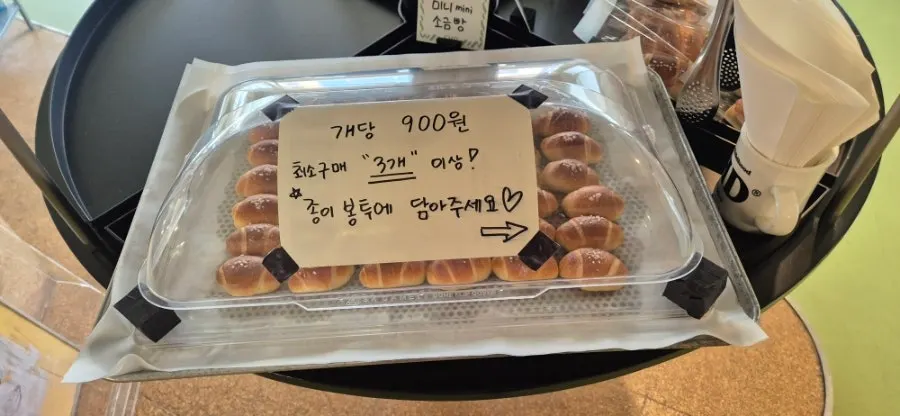 미니 mini
소금빵
개당 900원
최소구매 "3개" 이상!
☆ 종이 봉투에 담아주세요♡
→
D®